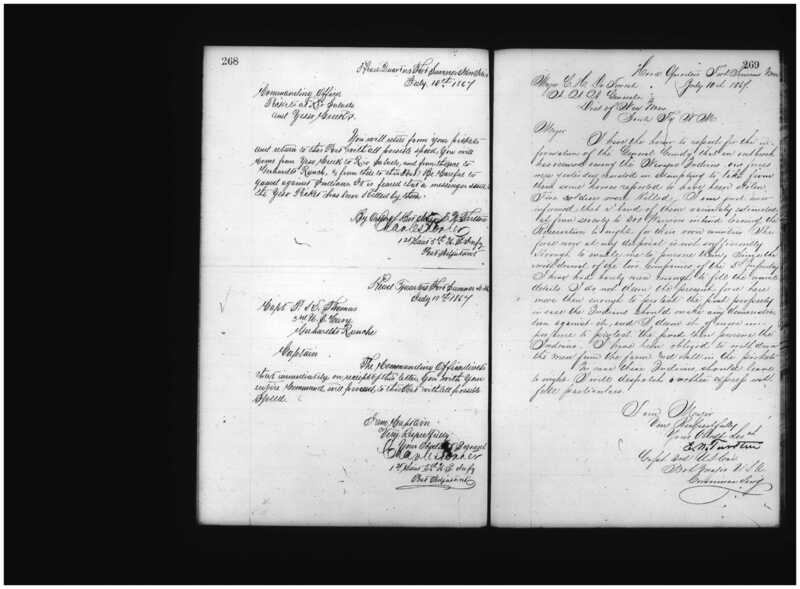 268
Head Quarters Fort Sumner New Mex
July 10th 1867
Commanding Officer
Pickets at Rio Salado
and Yeso Creeks
You will retire from your pickets
and return to this Post with all possible speed. You will
come from Yeso Creek to Rio Salado, and from thence to
Ranch, & from there to this Post. Be careful to
guard against Indians It is feared that a messenger sent
the Yeso Picket has been killed by them
By Order of
Charles Porter
1st Lieut 5th U.S. Infy
Post Adjutant
Head Quarters Fort Sumner N.M.
July 10th 1867
Capt Thomas
3rd U.S. Cavy
Ranche
Captain
The Commanding Officer directs
that immediately on receipt of this letter, you with your
entire Command will proceed to this Post with all possible
speed.
I am, Captain
Very Respectfully
Your Obedt Servant
Charles Porter
1st Lieut 5th U.S. Infy
Post Adjutant
269
Head Quarters Fort Sumner N.M.
July 10th 1867.
Major C. H. De Forrest
A. A. A. General
Dist of New Mex
Santa Fe N M
Major
I have the honor to report for the in-
formation of the General Comdg that an out break
has occured among the Navajo Indians on yesterday
in attempting to take from
them some horses reported to have been stolen
Five soldiers were killed. I am just now
informed that a band of them variously estimated
at from seventy to 200 Warriors intend leaving the
Reservation to night for their own country. The
force now at my disposal is not sufficiently
strong to enable me to pursue them, Since the
withdrawal of the two Companies of the 5th Infantry
I have had barely men enough to fill the usual
details. I do not deem the present force here
more than enough to protect the post properly
in case the Indians should make any demonstra-
tion against it, and I deem it of more im-
portance to protect the post than pursue the
Indians. I have been obliged to withdraw
the men from the farm and call in the pickets
In case these Indians should leave
to night. I will despatch another express with
full particulars.
I am Major
Very Respectfully
Your Obedt Servt
Capt and
U.S.A.
Commanding